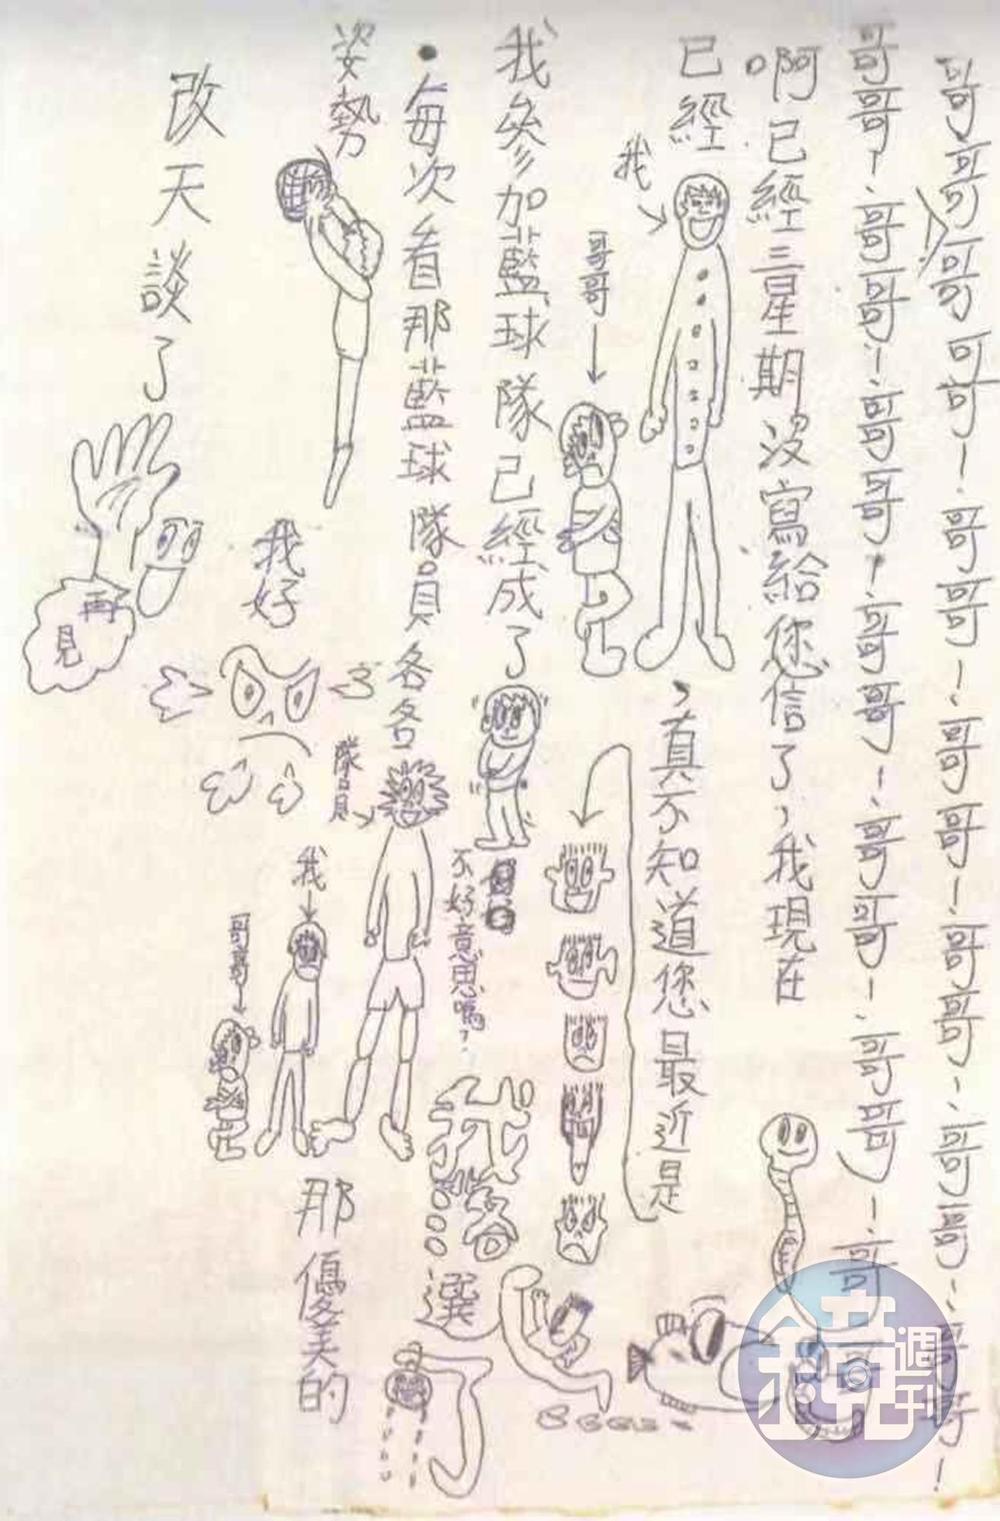 哥哥哥哥哥！哥哥！哥哥！哥哥！哥哥！哥哥！
哥哥！哥哥！哥哥！哥哥！哥哥！哥哥！哥哥
啊已經三星期沒寫給您信了，我現在
已經
我
哥哥
，真不知道您最近是
我參加籃球隊已經成了
不好意思嗎？
我
選
。每次看那籃球隊員各各
隊員
我
哥哥
那優美的
姿勢
我好
改天談了
再見
鏡週刊